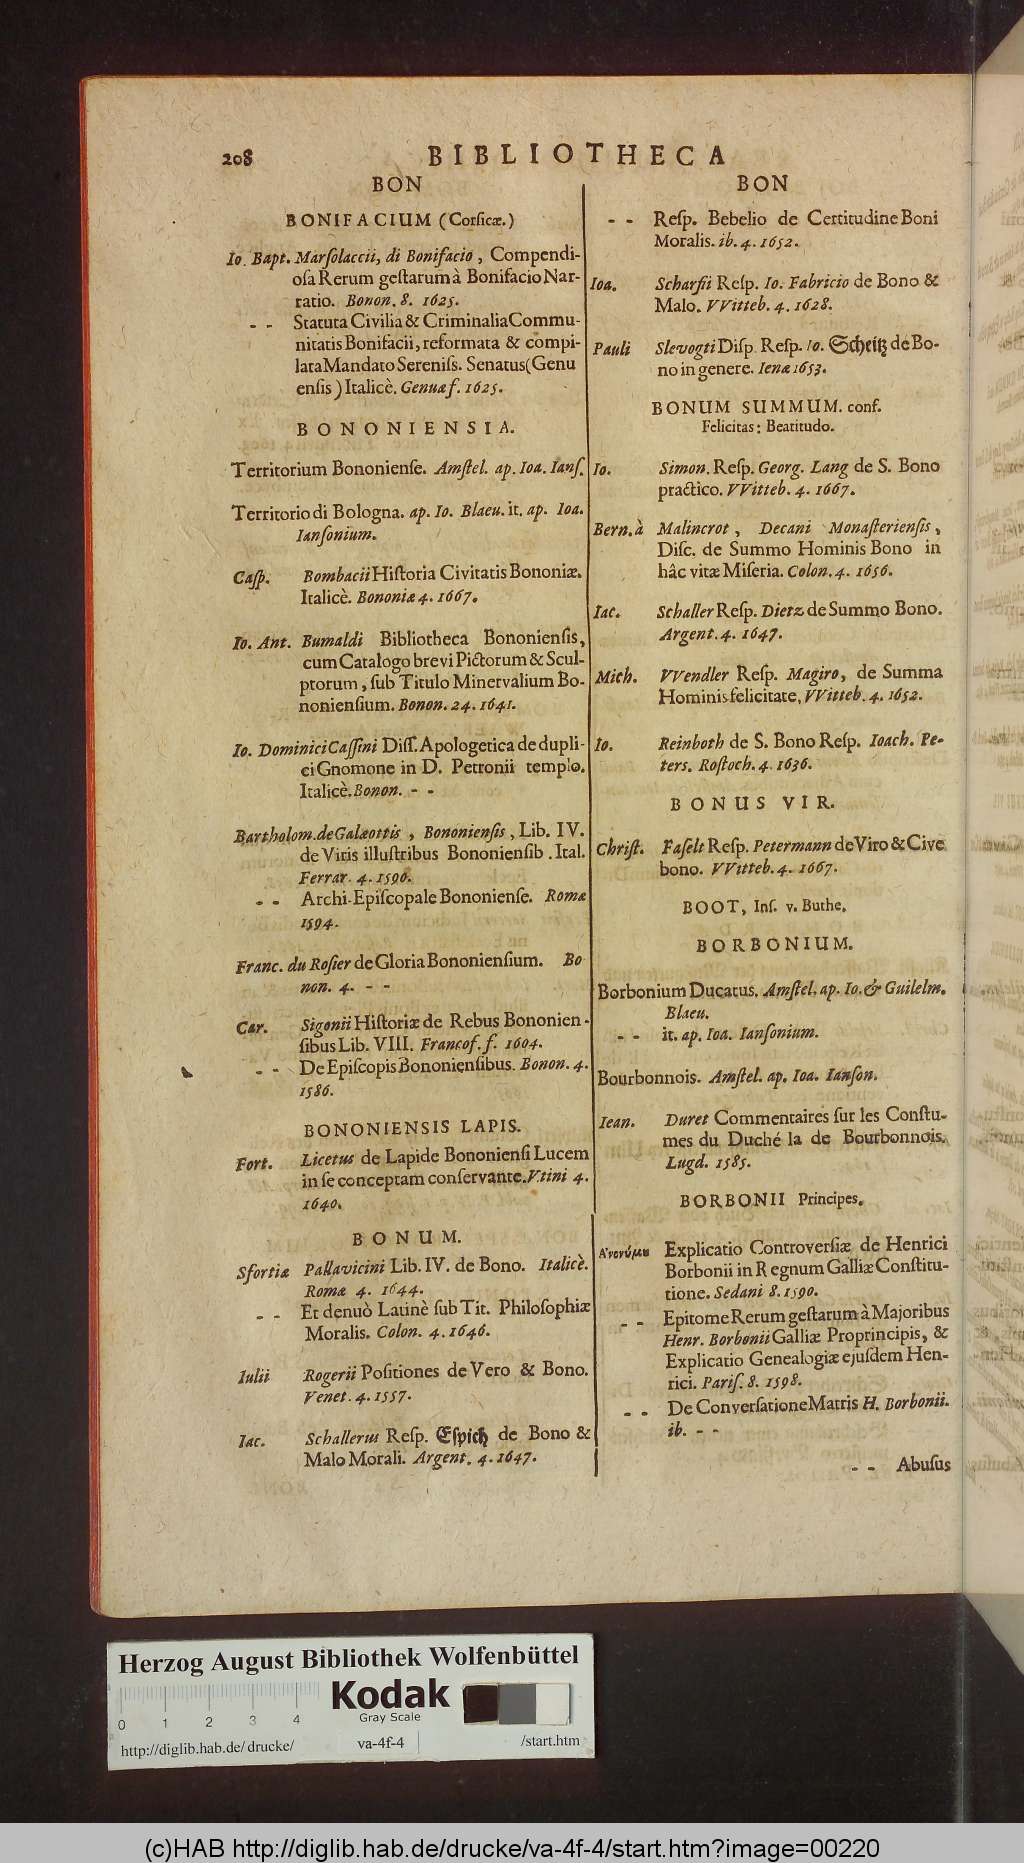 208 BIBLIOTHECA
BON
BONIFACIUM (Corſicæ.)
Io. Bapt. Marſolaccii, di Bonifacio, Compendi-
oſa Rerum geſtarum à Bonifacio Nar-
ratio. Bonon. 8. 1625.
- - Statuta Civilia & Criminalia Commu-
nitatis Bonifacii, reformata & compi-
lata Mandato Sereniſs. Senatus (Genu
enſis) Italicè. Genuæ f. 1625.
BONONIENSIA.
Territorium Bononienſe. Amſtel. ap. Ioa. Ianſ.
Territorio di Bologna. ap. Io. Blaeu. it. ap. Ioa.
Ianſonium.
Caſp. Bombacii Hiſtoria Civitatis Bononiæ.
Italicè. Bononiæ 4. 1667.
Io. Ant. Bumaldi Bibliotheca Bononienſis,
cum Catalogo brevi Pictorum & Scul-
ptorum, ſub Titulo Minervalium Bo-
nonienſium. Bonon. 24. 1641.
Io. Dominici Caſſini Diſſ. Apologetica de dupli-
ci Gnomone in D. Petronii templo.
Italicè. Bonon. - -
Bartholom. de Galeottis, Bononienſis, Lib. IV.
de Viris illuſtribus Bononienſib. Ital.
Ferrar. 4. 1590.
- - Archi-Epiſcopale Bononienſe. Romæ
1594.
Franc. du Roſier de Gloria Bononienſium. Bo
non. 4. - -
Car. Sigonii Hiſtoriæ de Rebus Bononien-
ſibus Lib. VIII. Francof. f. 1604.
- - De Epiſcopis Bononienſibus. Bonon. 4.
1586.
BONONIENSIS LAPIS.
Fort. Licetus de Lapide Bononienſi Lucem
in ſe conceptam conſervante. Vtini 4.
1640.
BONUM.
Sfortiæ Pallavicini Lib. IV. de Bono. Italicè.
Romæ 4. 1644.
- - Et denuò Latinè ſub Tit. Philoſophiæ
Moralis. Colon. 4. 1646.
Iulii Rogerii Poſitiones de Vero & Bono.
Venet. 4. 1557.
Iac. Schallerus Reſp. Eſpich de Bono &
Malo Morali. Argent. 4. 1647.
BON
- - Reſp. Bebelio de Certitudine Boni
Moralis. ib. 4. 1652.
Ioa. Scharfii Reſp. Io. Fabricio de Bono &
Malo. VVitteb. 4. 1628.
Pauli Slevogti Diſp. Reſp. Io. Scheitz de Bo-
no in genere. Ienæ 1653.
BONUM SUMMUM. conf.
Felicitas: Beatitudo.
Io. Simon. Reſp. Georg. Lang de S. Bono
practico. VVitteb. 4. 1667.
Bern. à Malincrot, Decani Monaſterienſis,
Diſc. de Summo Hominis Bono in
hâc vitæ Miſeria. Colon. 4. 1656.
Iac. Schaller Reſp. Dietz de Summo Bono.
Argent. 4. 1647.
Mich. VVendler Reſp. Magiro, de Summa
Hominis felicitate, VVitteb. 4. 1652.
Io. Reinboth de S. Bono Reſp. Ioach. Pe-
ters. Roſtoch. 4. 1636.
BONUS VIR.
Chriſt. Faſelt Reſp. Petermann de Viro & Cive
bono. VVitteb. 4. 1667.
BOOT, Inſ. v. Buthe.
BORBONIUM.
Borbonium Ducatus. Amſtel. ap. Io. & Guilelm.
Blaeu.
- - it. ap. Ioa. Ianſonium.
Bourbonnois. Amſtel. ap. Ioa. Ianſon.
Iean. Duret Commentaires ſur les Conſtu-
mes du Duché la de Bourbonnois.
Lugd. 1585.
BORBONII Principes.
Explicatio Controverſiæ de Henrici
Borbonii in Regnum Galliæ Conſtitu-
tione. Sedani 8. 1590.
- - Epitome Rerum geſtarum à Majoribus
Henr. Borbonii Galliæ Proprincipis, &
Explicatio Genealogiæ ejuſdem Hen-
rici. Pariſ. 8. 1598.
- - De Converſatione Matris H. Borbonii.
ib. - -
- - Abuſus
Herzog August Bibliothek Wolfenbüttel
Kodak
Gray Scale
0 1 2 3 4
http://diglib.hab.de/drucke/ va-4f-4 /start.htm
(c)HAB http://diglib.hab.de/drucke/va-4f-4/start.htm?image=00220